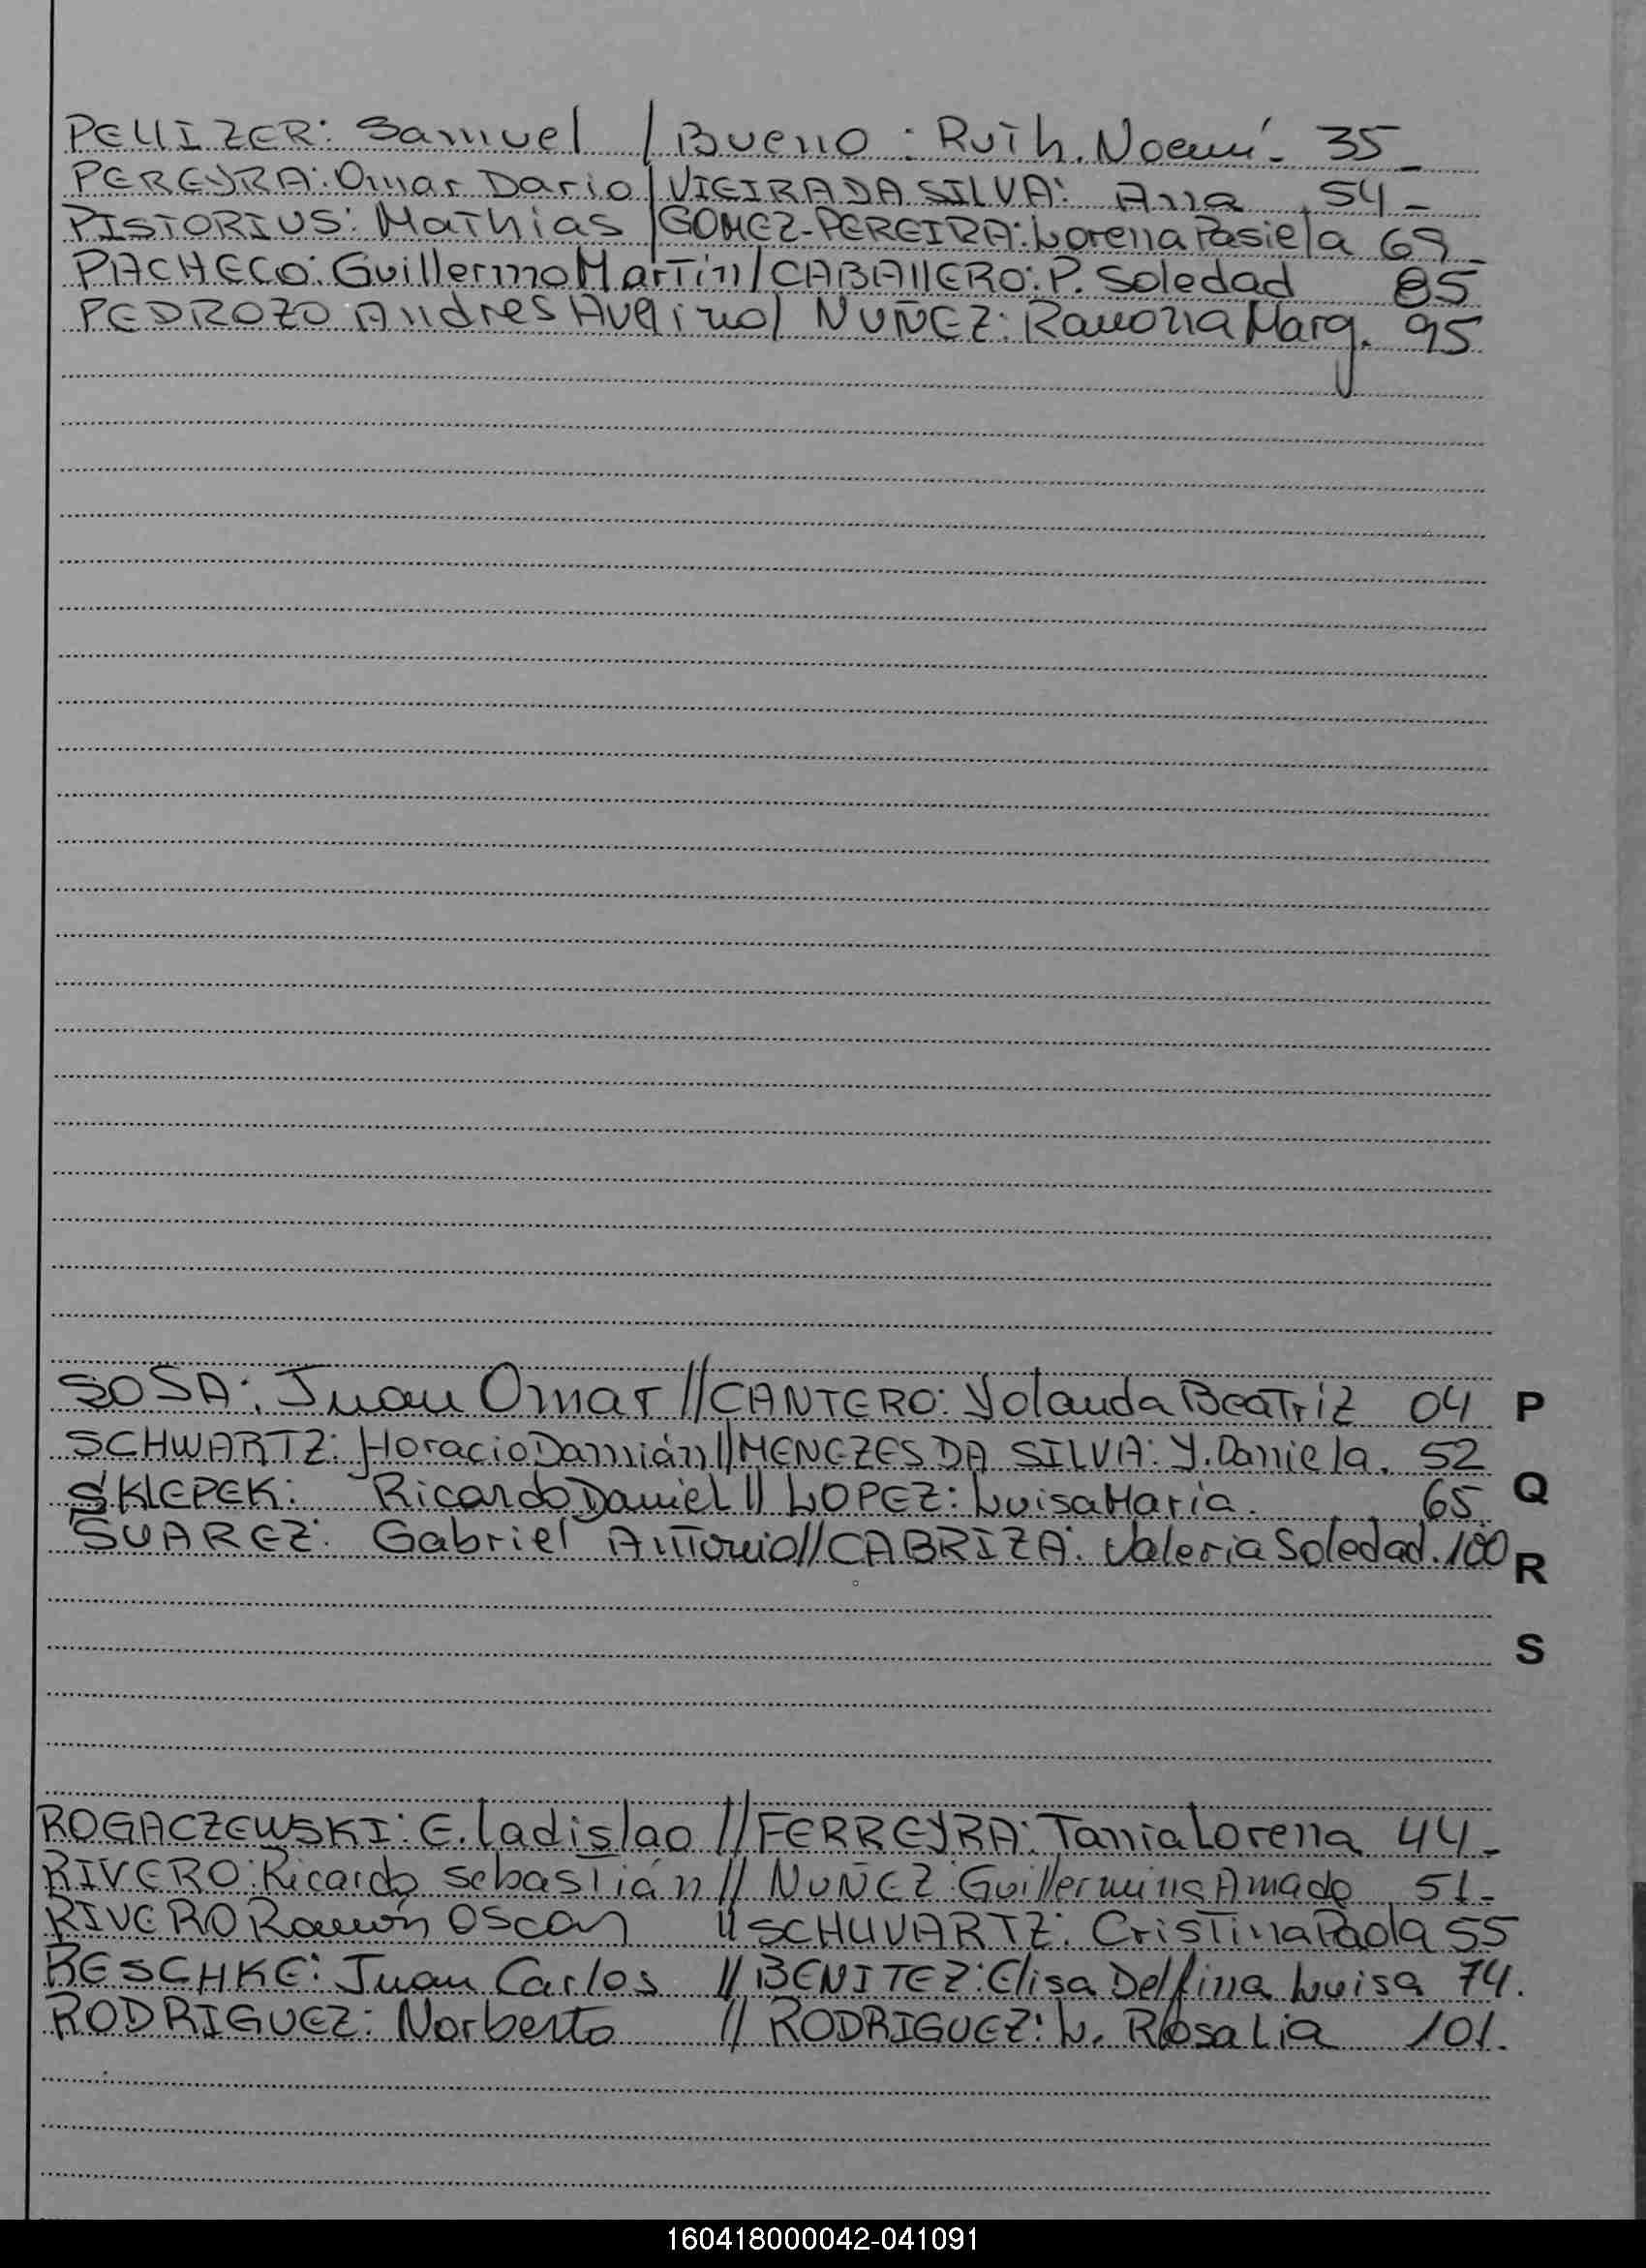 PELLIZER: Samuel / Bueno: Ruth. Noemí - 35 -
PEREYRA: Omar Dario / VIEIRA DA SILVA: Ana 54 -
PISTORIUS: Mathias / GOMEZ-PEREIRA: Lorena Pasiela 69 -
PACHECO: Guillermo Martín / CABALLERO: P. Soledad 85
PEDROZO Andres Avelino / NUÑEZ: Ramona Marg. 95
SOSA: Juan Omar // CANTERO: Yolanda Beatriz 04 P
SCHWARTZ: Horacio Damián // MENEZES DA SILVA: Y. Daniela. 52
SKLEPEK: Ricardo Daniel // LOPEZ: Luisa Maria. 65 Q
SUAREZ: Gabriel Antonio // CABRIZA: Valeria Soledad. 100 R
S
ROGACZEWSKI: E. ladislao // FERREYRA: Tania Lorena 44 -
RIVERO: Ricardo Sebastián // NUÑEZ: Guillermina Amado 51 -
RIVERO Ramón Oscar // SCHUVARTZ: Cristina Paola 55
RESCHKE: Juan Carlos // BENITEZ: Elisa Delfina Luisa 74.
RODRIGUEZ: Norberto // RODRIGUEZ: L. Rosalia 101.
160418000042-041091